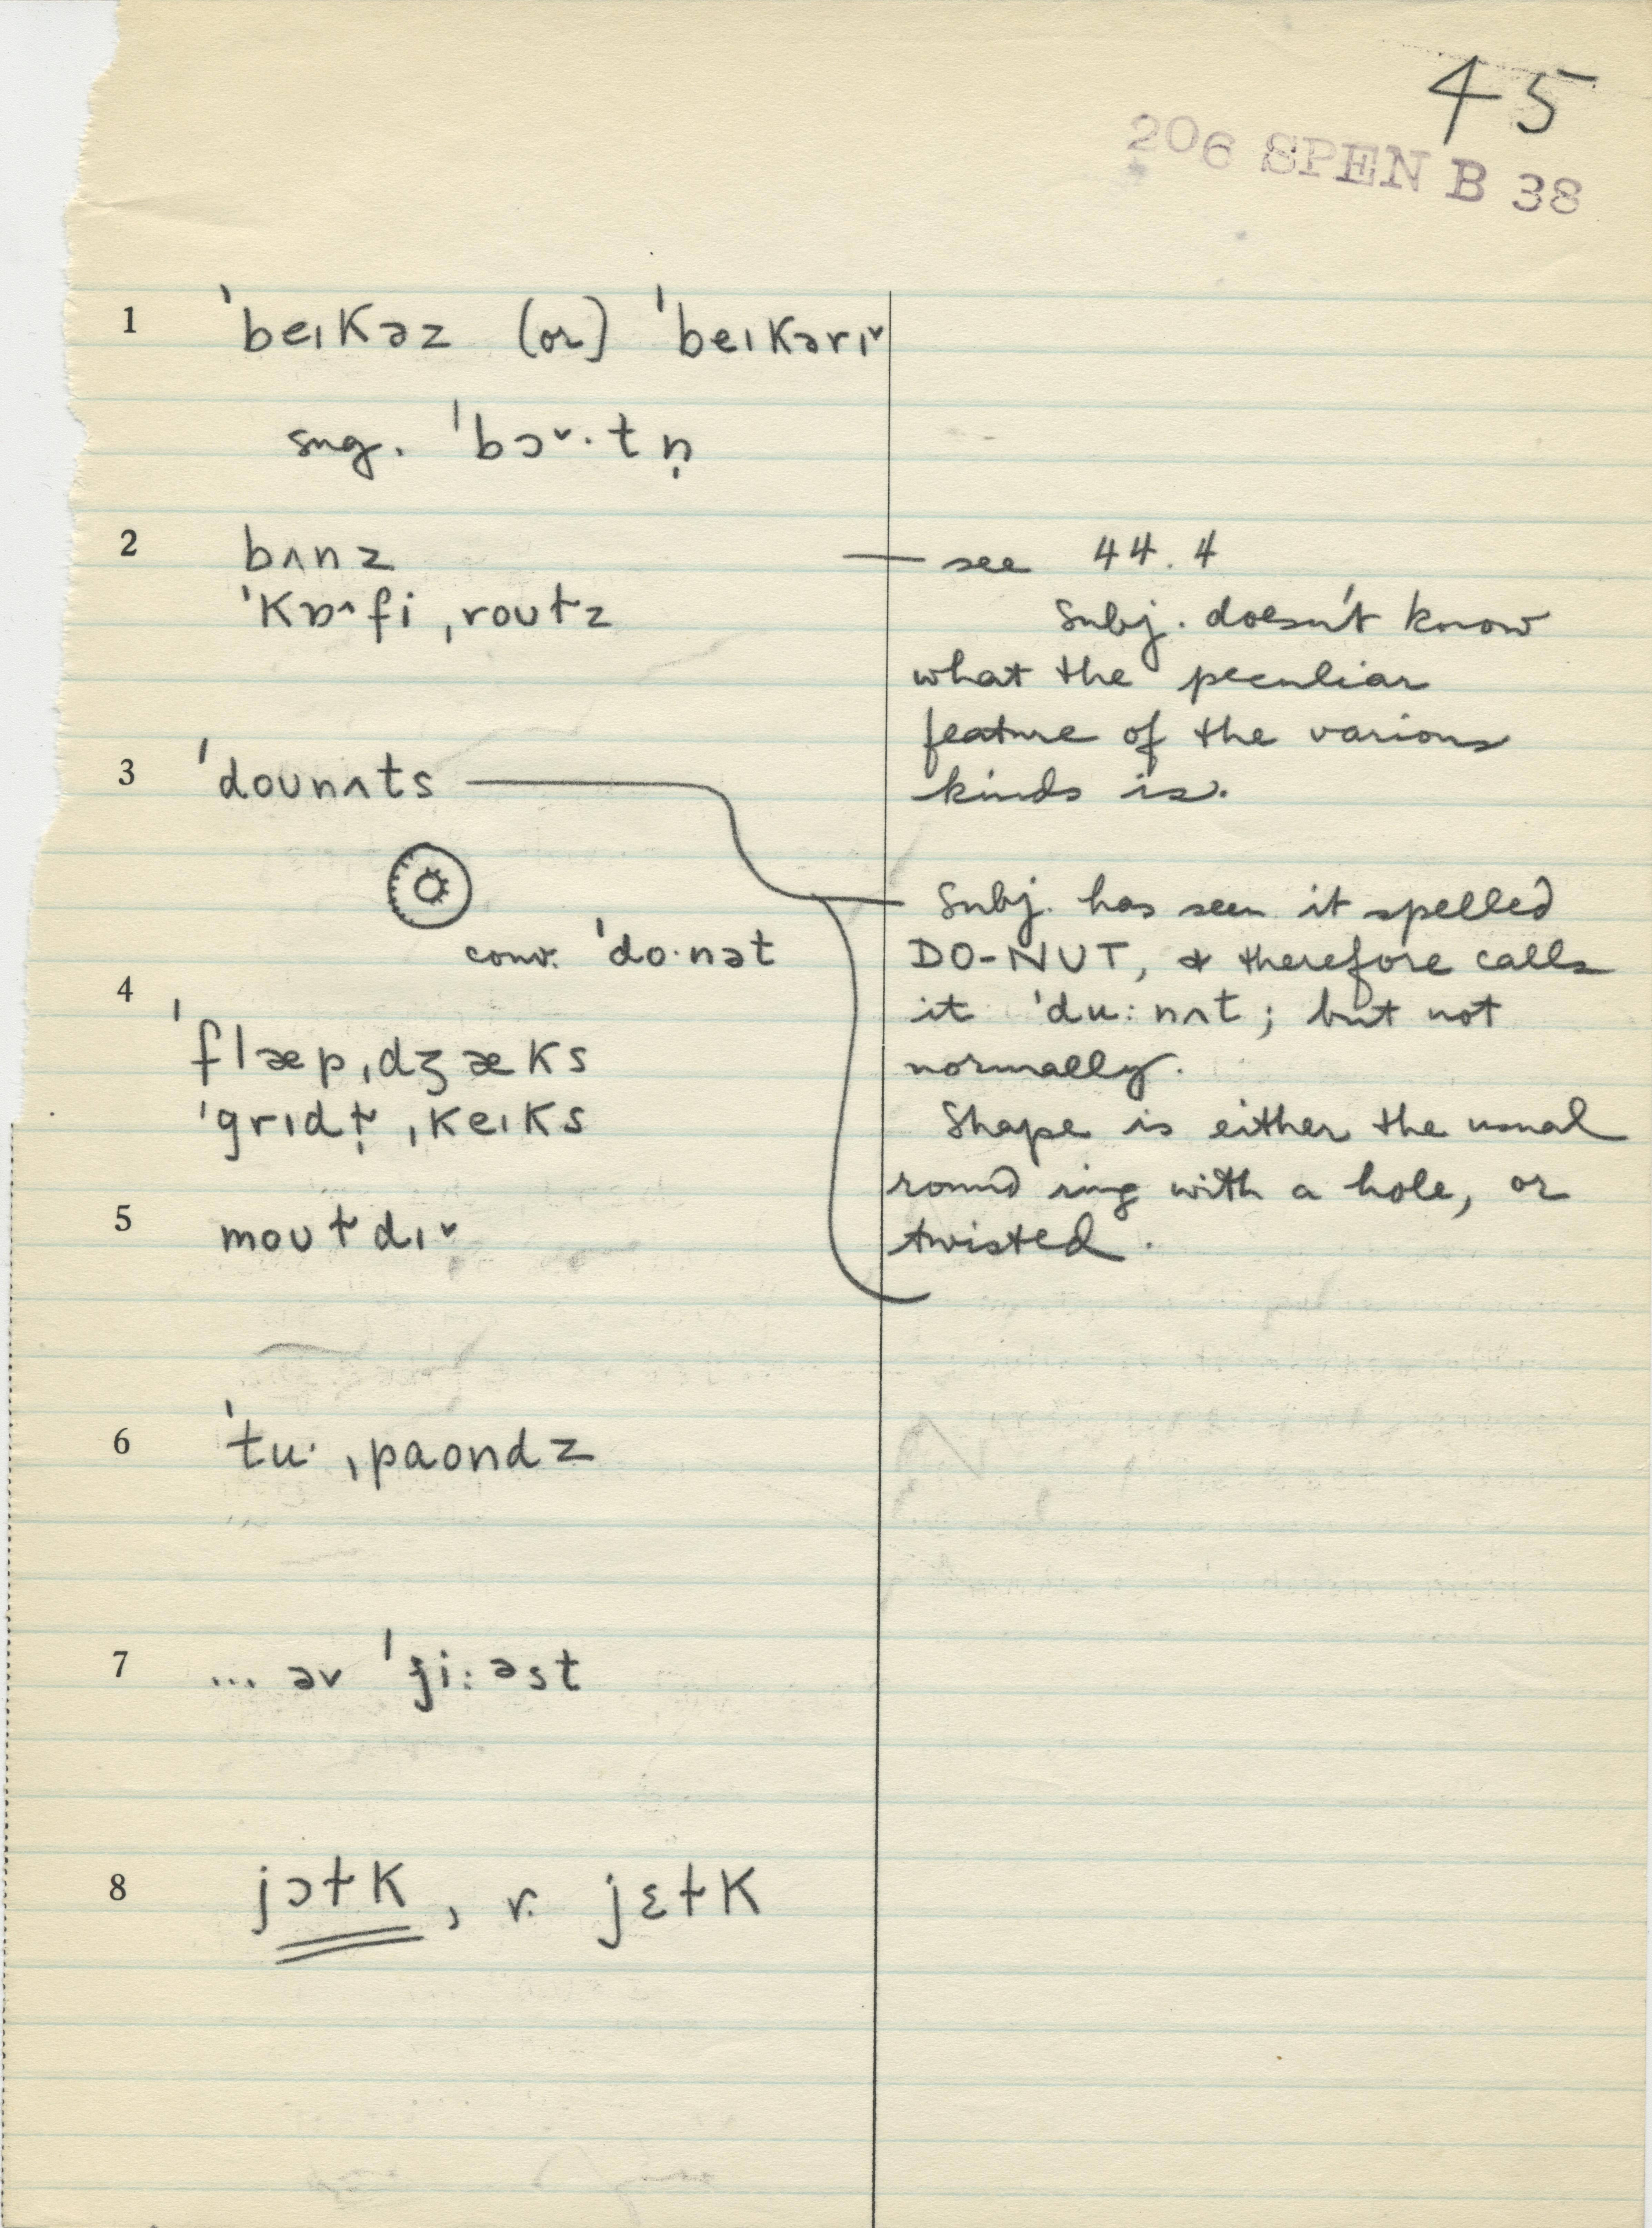 45
206 SPEN B 38
1 ˈbeɪkəz (or) ˈbeɪkərɪ˅
sug. ˈbɔ˅·tn̩
2 bʌnz
— see 44.4
ˈkɒ^fi ˌroʊɫz
Subj. doesn't know
what the peculiar
feature of the various
kinds is.
3 ˈdoʊnʌts
conv. ˈdo·nət
Subj. has seen it spelled
DO-NUT, & therefore calls
it ˈdu:nʌt; but not
normally.
Shape is either the usual
round ring with a hole, or
twisted.
4
ˈflæpˌdʒæks
ˈgrɪdɫ̩ ˌkeɪks
5 moʊɫdɪ˅
6 ˈtu· ˌpaʊndz
7 ... əv ˈji:əst
8 jɔɫk, r. jɛɫk